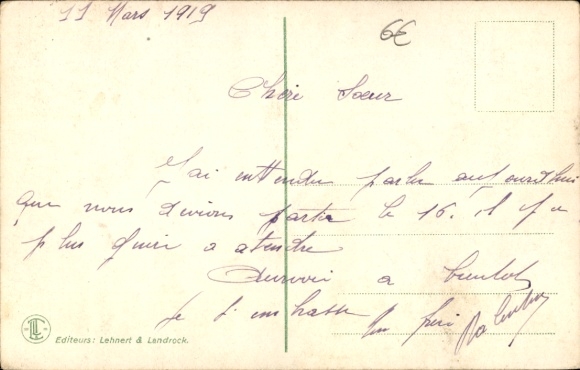 11 Mars 1919
6€
Chère Sœur
J'ai entendu parler aujourd'hui
que nous devions partir le 16. il y a
plus qu'a atendre
Aurevoir a bientot
Je t'embrasse
Ton frère
Editeurs: Lehnert & Landrock.